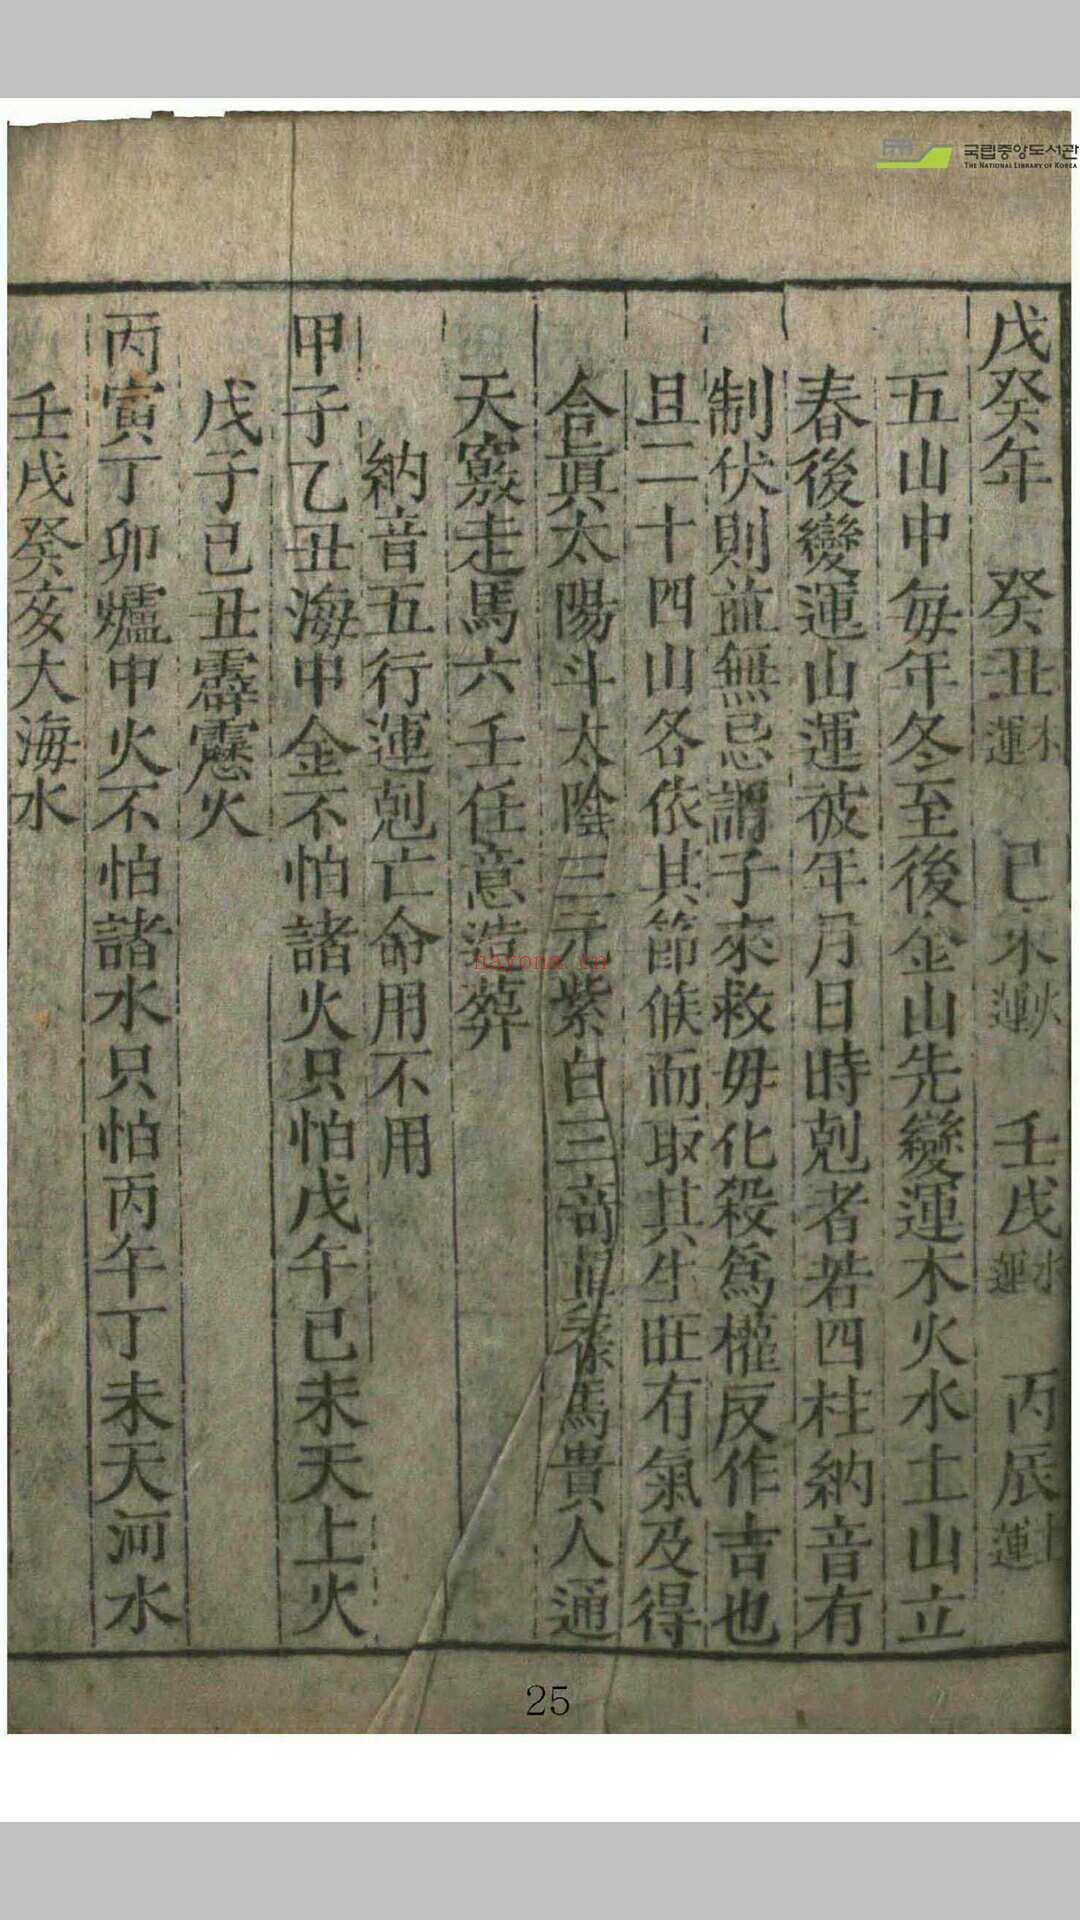 국립중앙도서관
THE NATIONAL LIBRARY OF KOREA
戊癸年 癸丑木運 己未火運 壬戌水運 丙辰土運
五山中每年冬至後金山先變運木火水土山立
春後變運山運被年月日時剋者若四柱納音有
制伏則並無忌謂子來救毋化殺爲權反作吉也
且二十四山各依其節候而取其生旺有氣及得
合眞太陽斗太陰三元紫白三奇眞祿馬貴人通
天竅走馬六壬任意浩葬
納音五行運剋亡命用不用
甲子乙丑海中金不怕諸火只怕戊午己未天上火
戊子己丑霹靂火
丙寅丁卯爐中火不怕諸水只怕丙午丁未天河水
壬戌癸亥大海水
nayona.cn
25